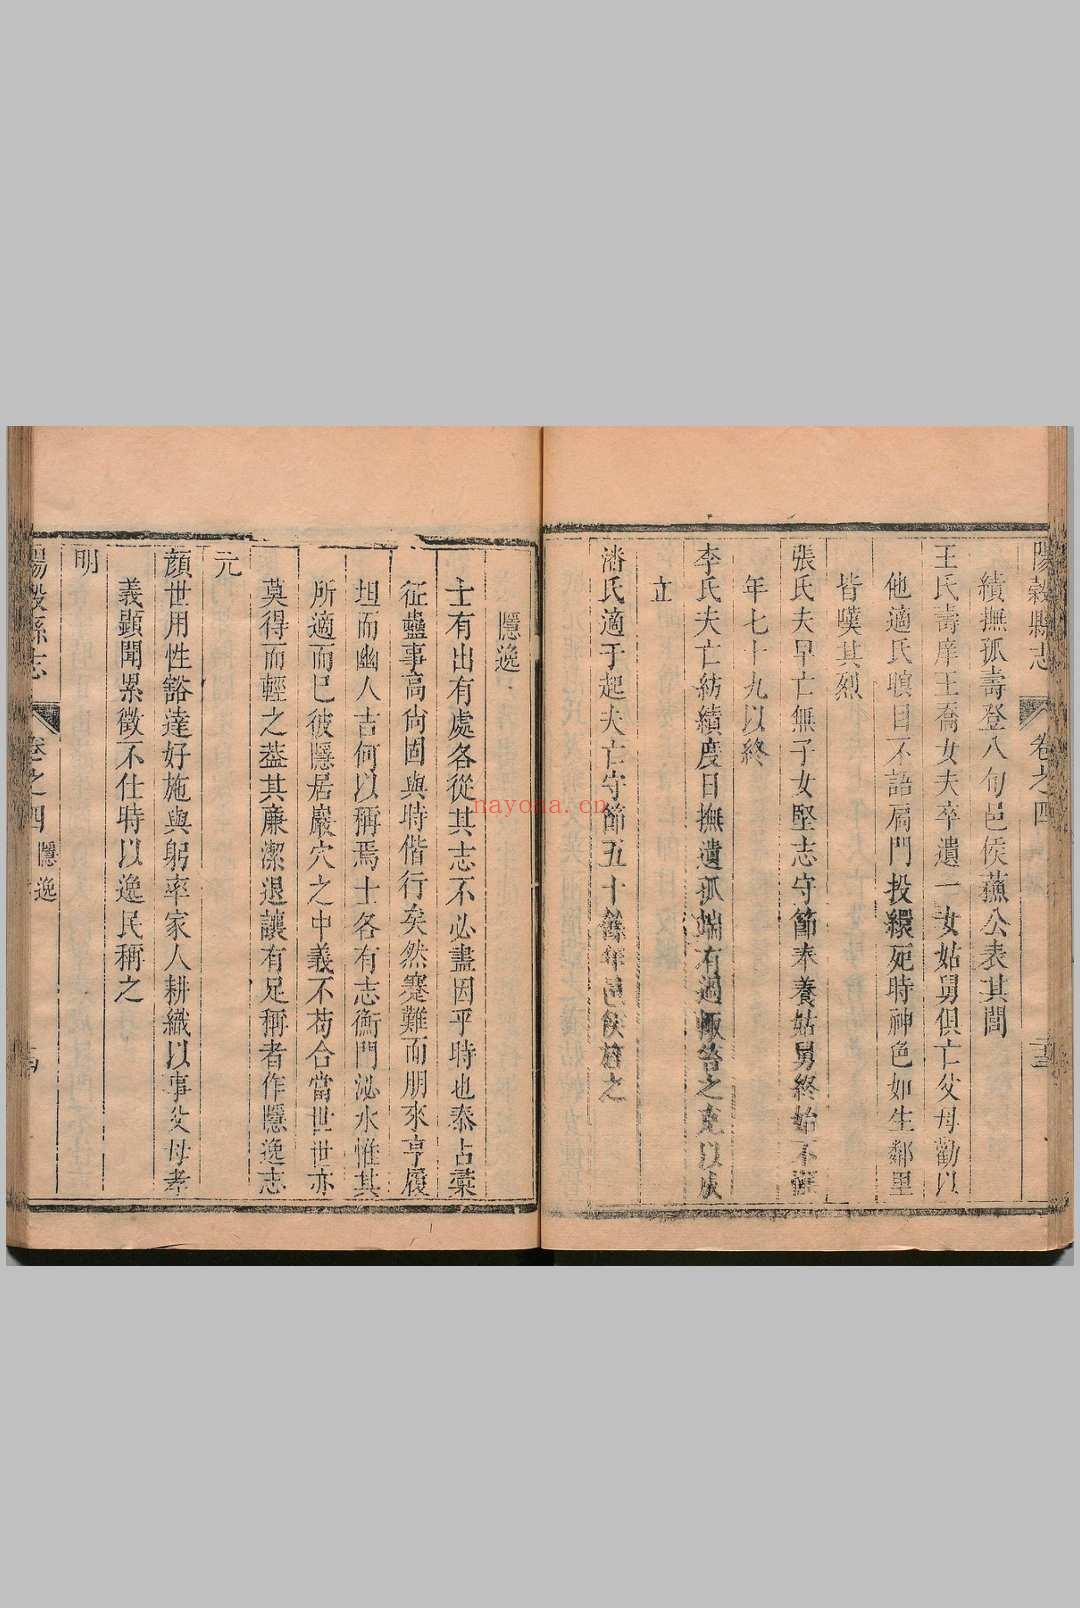 陽穀縣志 卷之四
績撫孤壽登八旬邑侯蕭公表其閭
王氏壽庠王喬女夫卒遺一女姑舅俱亡父母勸以
他適氏瞋目不語扃門投繯死時神色如生鄰里
皆嘆其烈
張氏夫早亡無子女堅志守節奉養姑舅終始不
年七十九以終
李氏夫亡紡績度日撫遺孤端有過輒笞之克以成
立
潘氏適于起夫亡守節五十餘年邑侯旌之
隱逸
士有出有處各從其志不必盡因乎時也泰占彙
征蠱事高尙固與時偕行矣然蹇難而朋來亨履
坦而幽人吉何以稱焉士各有志衡門泌水惟其
所適而已彼隱居巖穴之中義不苟合當世世亦
莫得而輕之葢其廉潔退讓有足稱者作隱逸志
元
顏世用性豁達好施與躬率家人耕織以事父母孝
義顯聞累徵不仕時以逸民稱之
明
陽穀縣志 卷之四 隱逸
nayona.cn